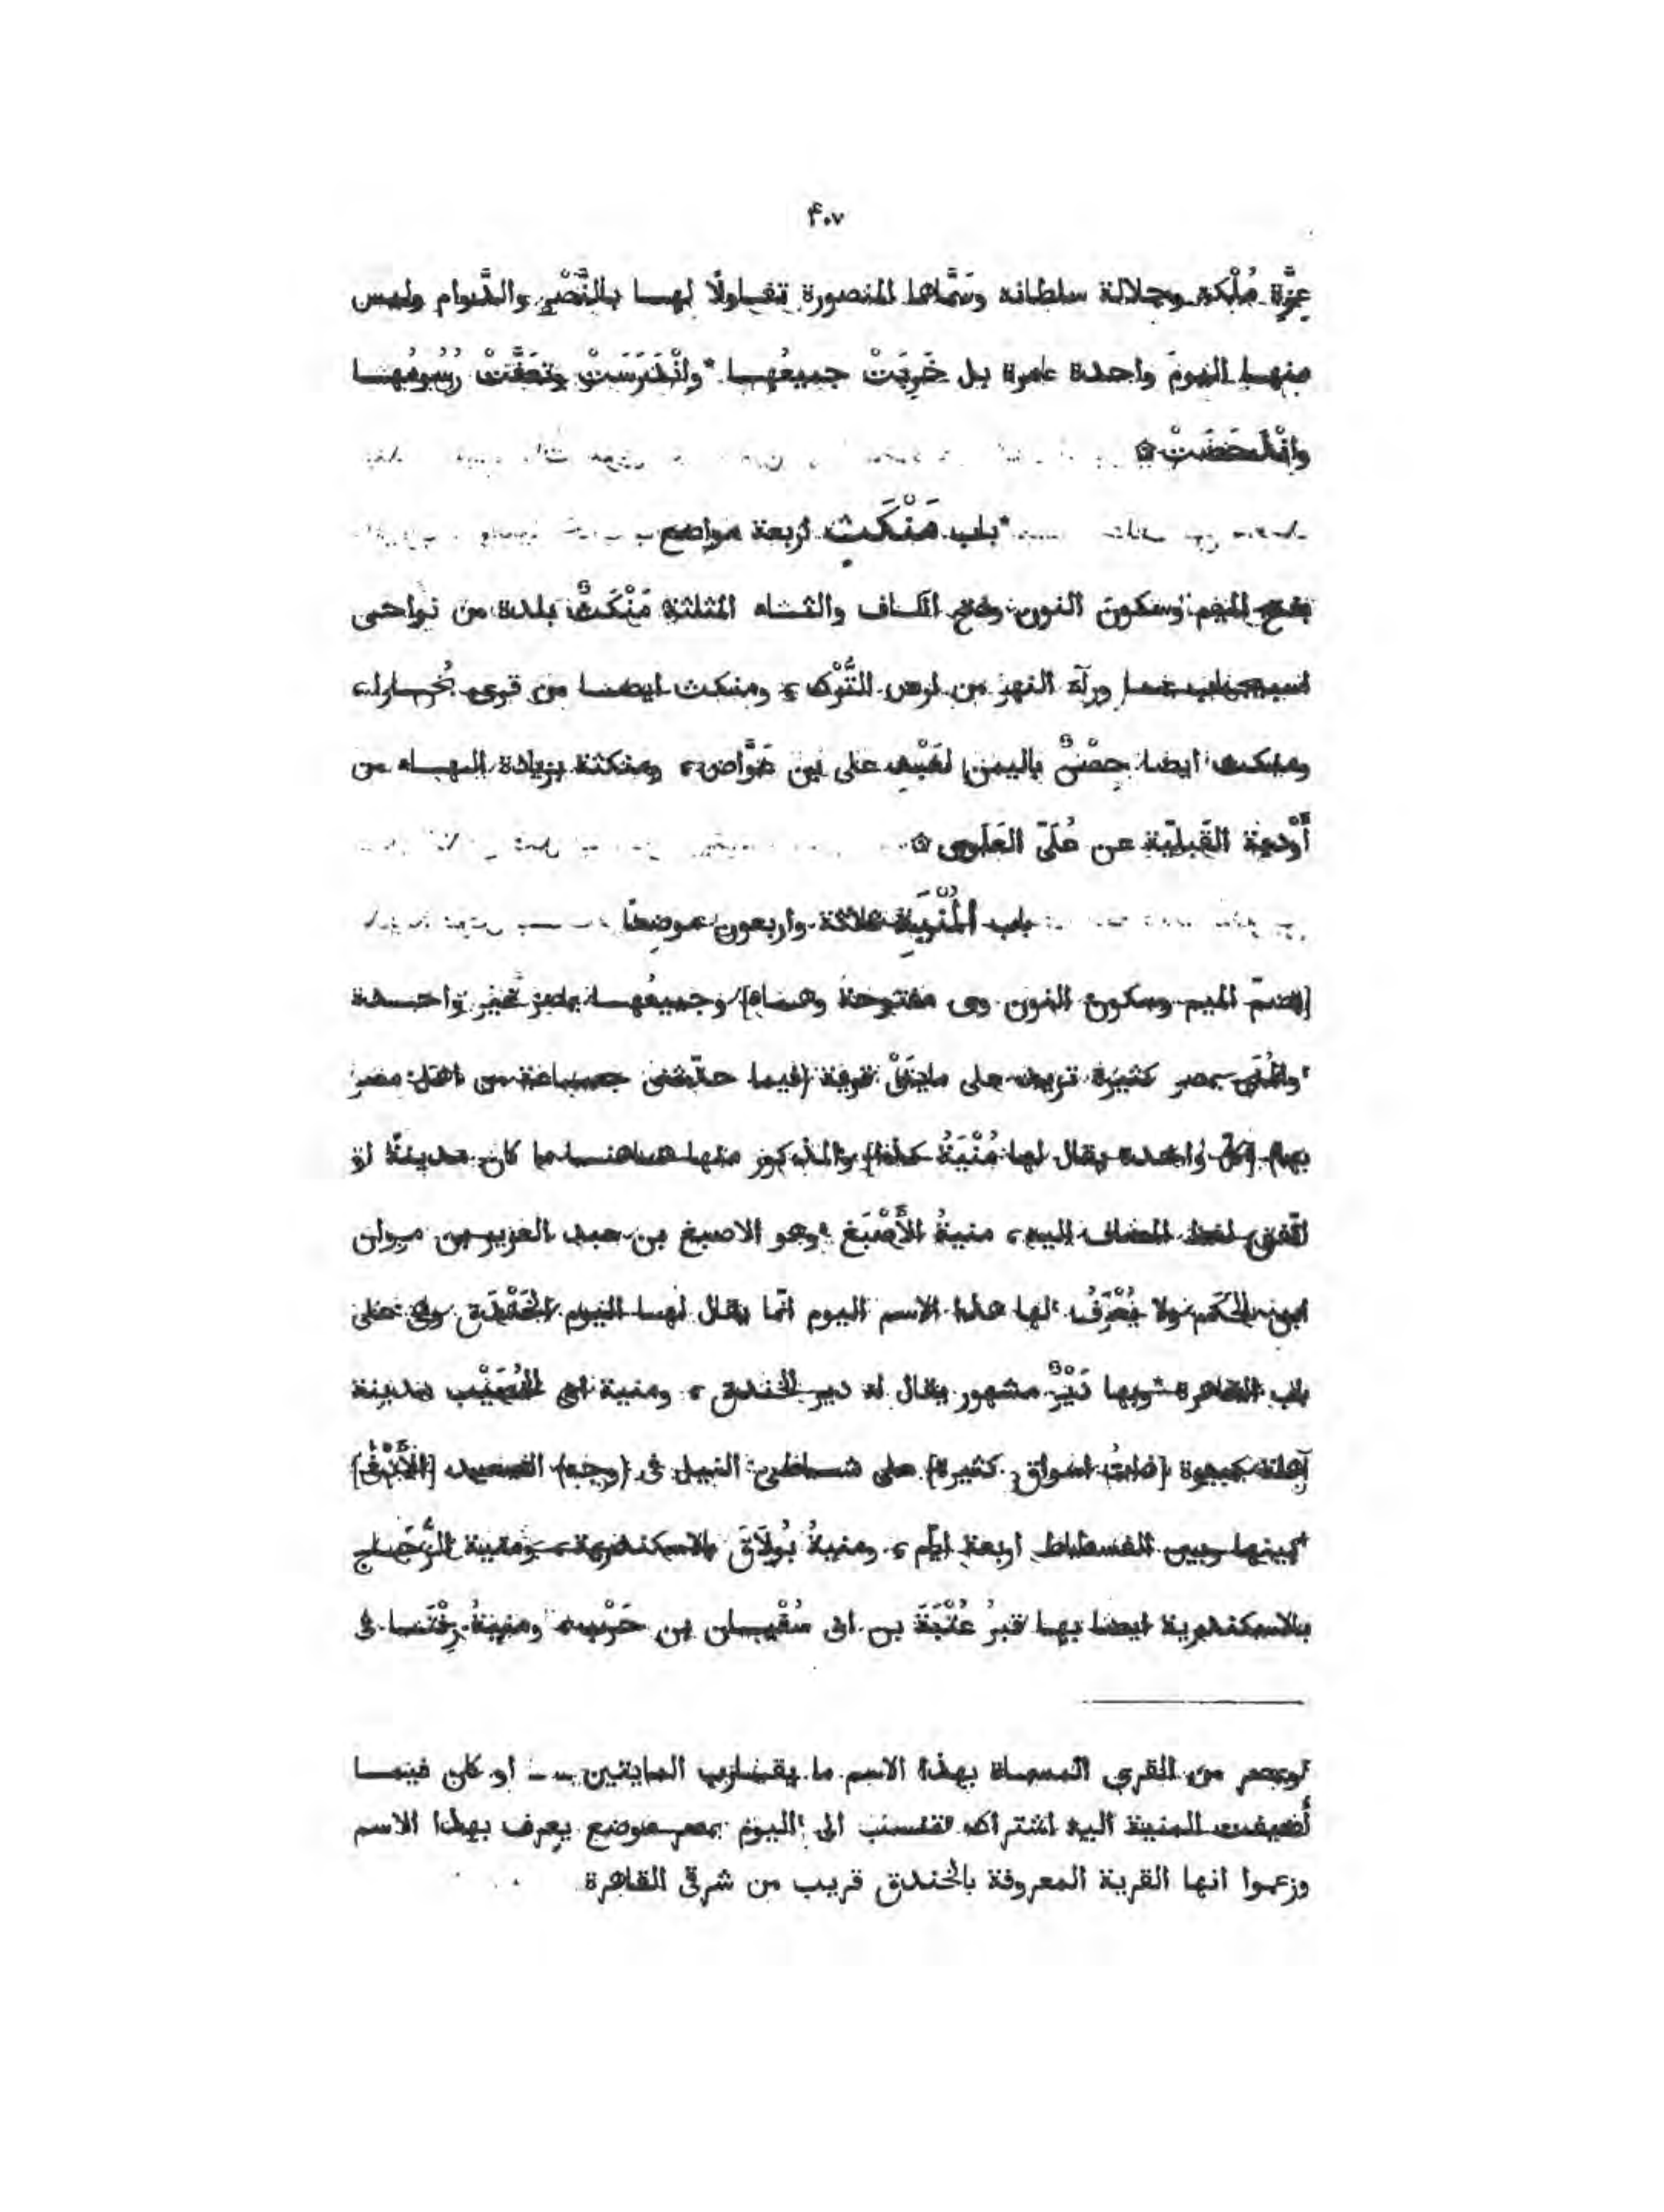 ۴۰۷
عِزَّةِ مُلْكِهِ وجلالة سلطانه وسَمَّاها المنصورة تفاولًا لها بالنَّصْرِ والدَّوام وليس
منها اليومَ واحدة عامرة بل خَرِبَتْ جميعُها *وانْدَرَسَتْ وتعَفَّتْ رُسُومُها
وانْدَحَضَتْ ۞
*باب مَنْكَثٍ اربعة مواضع
بفتح الميم وسكون النون وفتح الكاف والثاء المثلثة مَنْكَثٌ بلدة من نواحى
اسبيجاب بما ورآء النهر من ارض التُّرْك، ومنكث ايضا من قرى بُخارا،
ومنكث ايضا حِصْنٌ باليمن لعَبْدِ على بن عَوَّاض، ومنكثة بزيادة الهاء من
أَوْدية القَبليّة عن عُلَىّ العَلَوى ۞
باب المُنْيَةِ ثلاثة واربعون موضعًا
[بضمّ الميم وسكون النون وى مفتوحة وهاء] وجميعُها بمصر غير واحدة
*والمُنَى بمصر كثيرة تزيد على مايتَىْ قرية (فيما حدّثنى جماعة من اهل مصر
بها) [كلّ واحدة يقال لها مُنْيَةُ كذا] والمذكور منها هاهنا ما كان مدينةً او
اتّفق لفظ المضاف اليه، منيةُ الأَصْبَغ *وهو الاصبغ بن عبد العزيز بن مروان
ابن الحَكَم ولا يُعْرَفُ لها هذا الاسم اليوم انّما يقال لها اليوم الخَنْدَق وهى على
باب القاهرة *وبها دَيْرٌ مشهور يقال له دير الخندق، ومنية ابى الخُصَيْب مدينة
آهلة كبيرة [ذاتُ اسواق كثيرة] على شاطئ النيل فى (وجه) الصعيد [الأَدْنَى]
*بينها وبين الفسطاط اربعة ايّام، ومنيةُ بُولَاقَ بالاسكندرية، ومنية الزَّجَاج
بالاسكندرية ايضا بها قبرُ عُتْبَةَ بن ابى سُفْيان بن حَرْب، ومنيةُ زِفْتَا فى
*وبمصر من القرى المسماة بهذا الاسم ما يقارب المايتين -- او كان فيما
أُضيفت المنية اليه اشتراك *تنسب الى *اليوم بمصر موضع يعرف بهذا الاسم
وزعموا انها القرية المعروفة بالخندق قريب من شرقى القاهرة